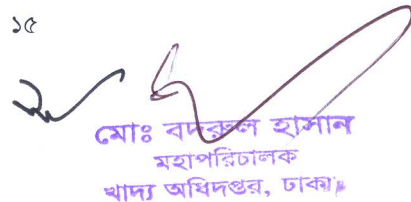 ১৫
মোঃ বদরুল হাসান
মহাপরিচালক
খাদ্য অধিদপ্তর, ঢাকা।